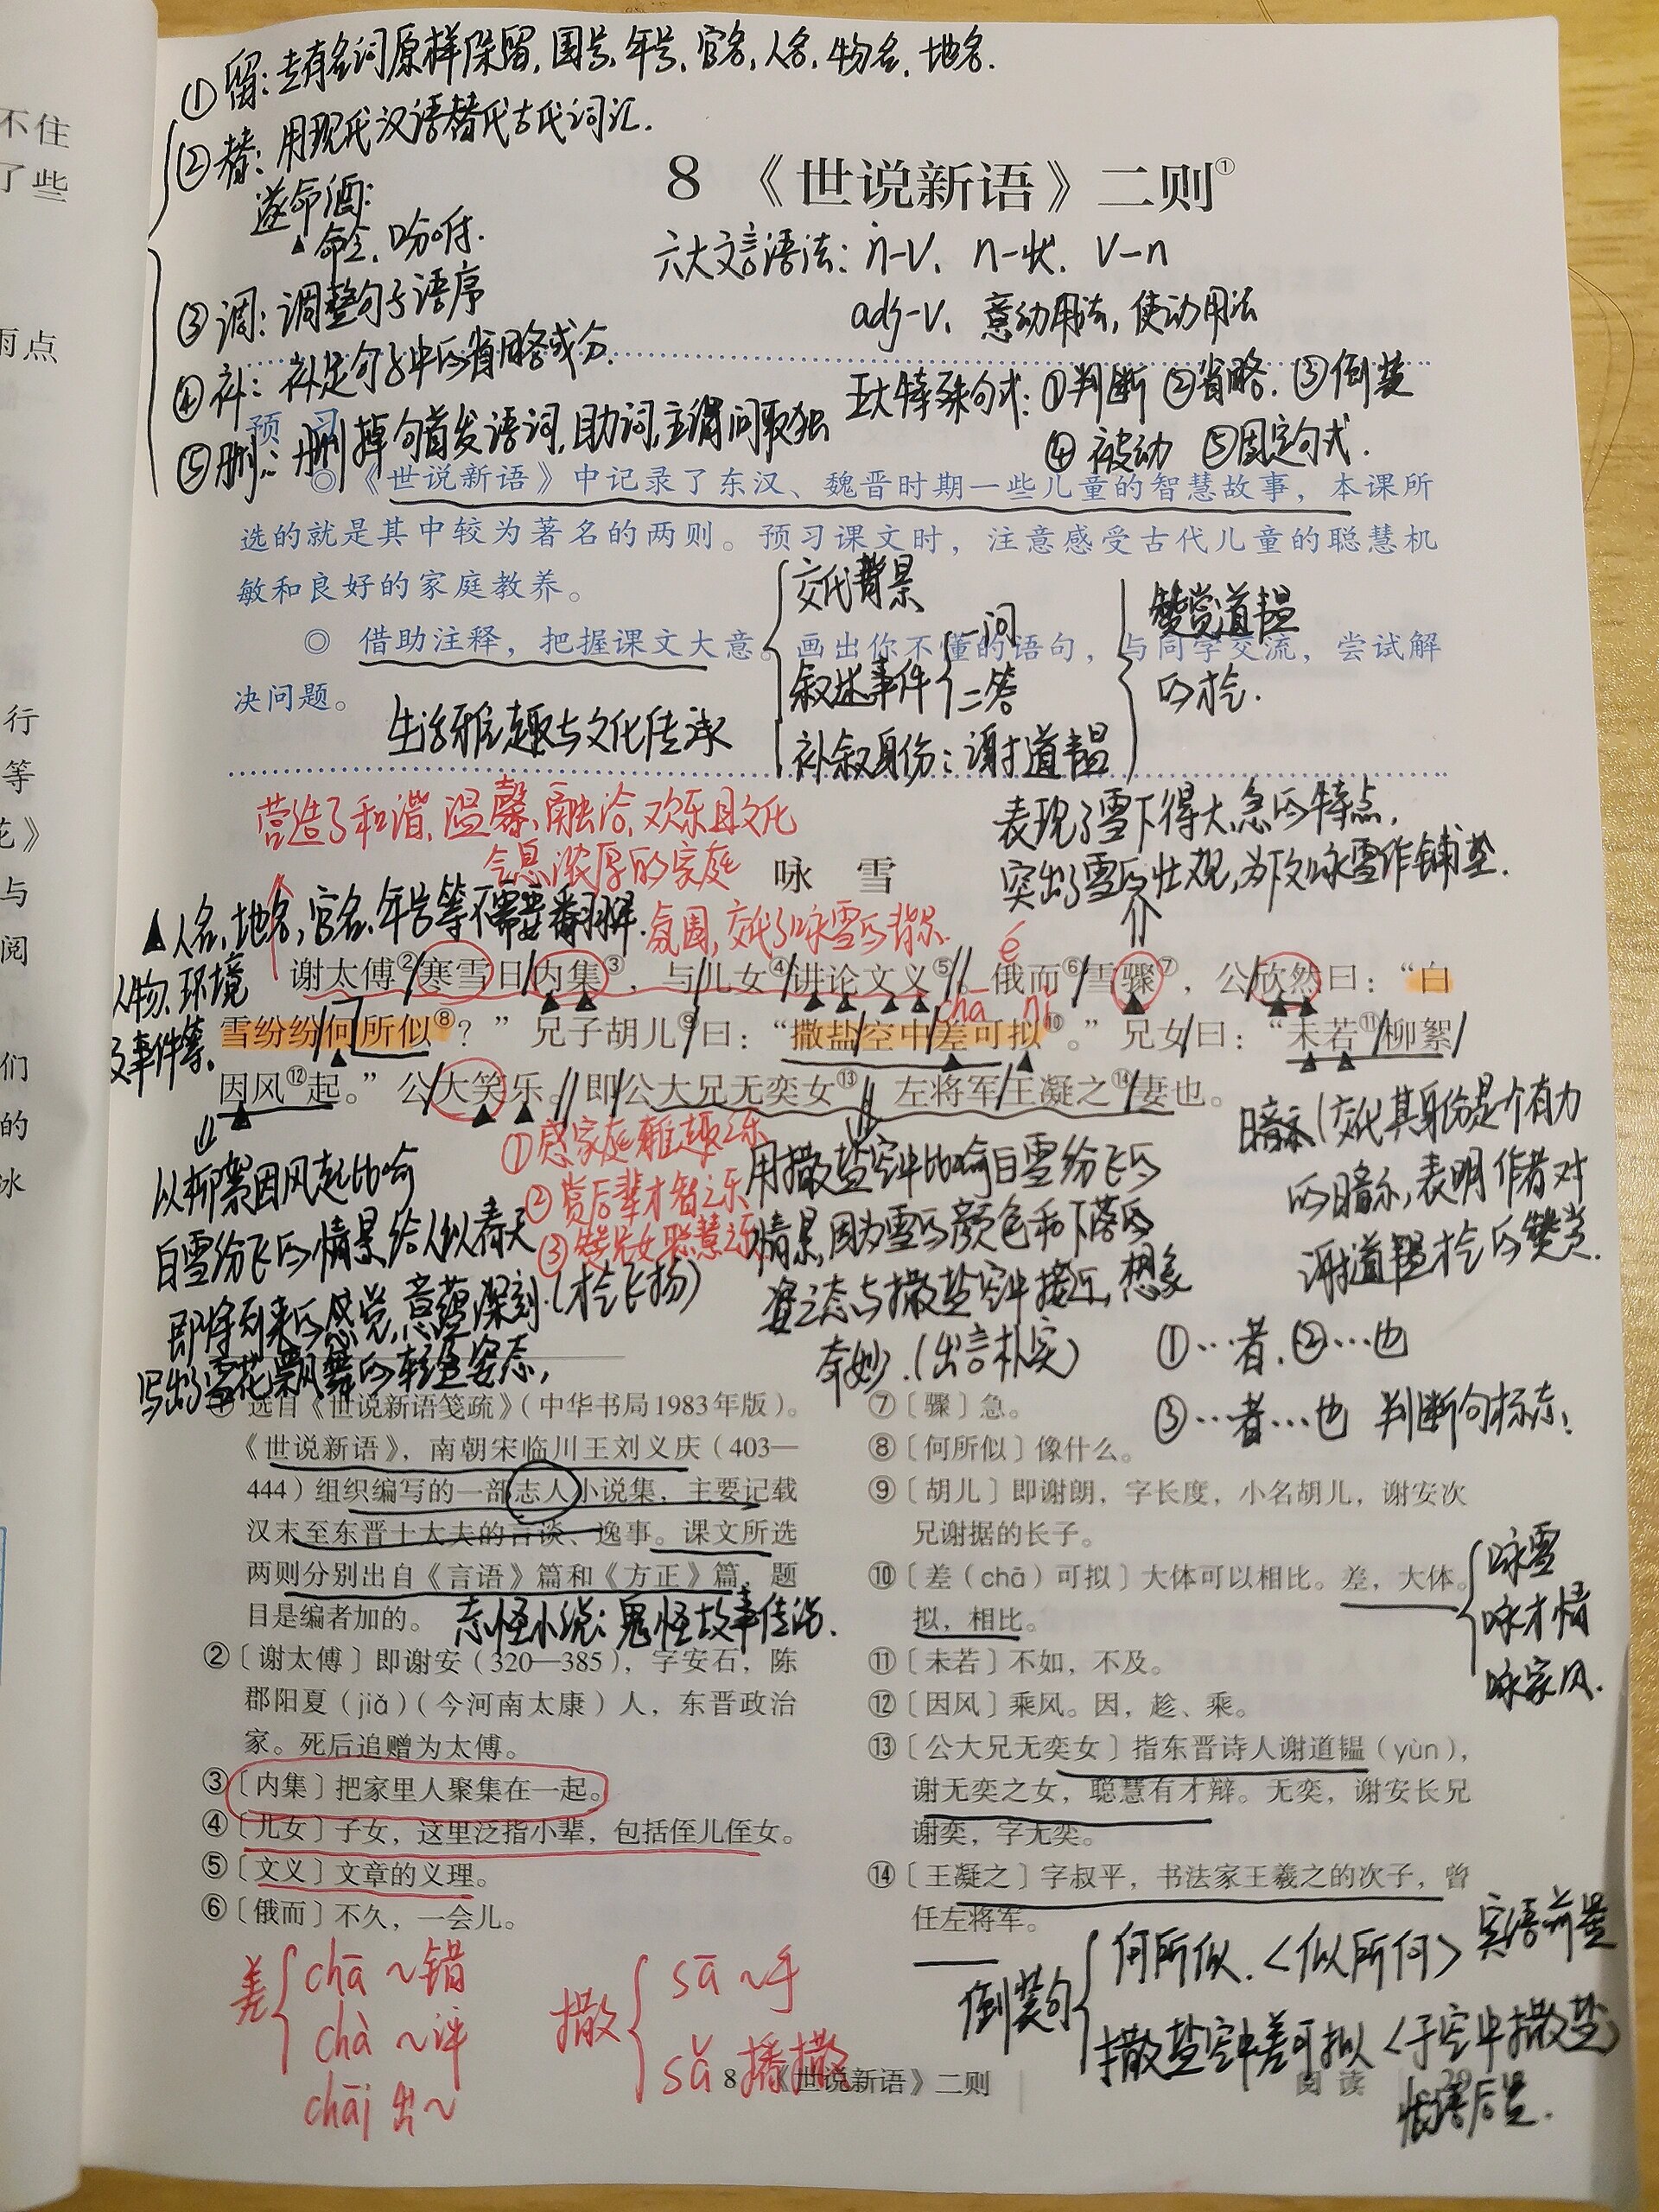 不住
了些
雨点
行
等
花》
与
阅
们
的
冰
①留:专有名词原样保留,国号,年号,官名,人名,物名,地名.
②替:用现代汉语替代古代词汇.
遂命酒:
▲命令,吩咐.
③调:调整句子语序
④补:补足句子中的省略成分.
⑤删:删掉句首发语词,助词,主谓间取独
8 《世说新语》二则①
六大文言语法:n-v、n-状、v-n
adj-v、意动用法,使动用法
五大特殊句式:①判断 ②省略.③倒装
④被动 ⑤固定句式.
预 习
◎《世说新语》中记录了东汉、魏晋时期一些儿童的智慧故事,本课所
选的就是其中较为著名的两则。预习课文时,注意感受古代儿童的聪慧机
敏和良好的家庭教养。
◎ 借助注释,把握课文大意。画出你不懂的语句,与同学交流,尝试解
决问题。
生活雅趣与文化传承
交代背景
叙述事件
一问
二答
补叙身份:谢道韫
赞赏道韫
的才气.
营造了和谐,温馨,融洽,欢乐且文化
气息浓厚的家庭
氛围,交代了咏雪的背景.
表现了雪下得大,急的特点,
突出了雪的壮观,为下文咏雪作铺垫.
咏 雪
▲人名,地名,官名,年号等不需要翻译.
人物、环境
及事件等.
é
谢太傅②寒雪日内集③,与儿女④讲论文义⑤。俄而⑥雪骤⑦,公欣然曰:“白
chā nǐ
雪纷纷何所似⑧?”兄子胡儿⑨曰:“撒盐空中差可拟⑩。”兄女曰:“未若⑪柳絮
因风⑫起。”公大笑乐。即公大兄无奕女⑬,左将军王凝之⑭妻也。
以柳絮因风起比喻
白雪纷飞的情景给人以春天
即将到来的感觉,意蕴深刻.(才气飞扬)
写出了雪花飘舞的轻盈姿态,
①感家庭雅趣之乐
②赏后辈才智之乐
③赞兄女聪慧之乐
用撒盐空中比喻白雪纷飞的
情景,因为雪的颜色和下落的
姿态与撒盐空中接近,想象
奇妙.(出言朴实)
暗示(交代其身份是个有力
的暗示,表明作者对
谢道韫才气的赞赏.
①…者.②…也
③…者…也 判断句标志.
① 选自《世说新语笺疏》(中华书局1983年版)。
《世说新语》,南朝宋临川王刘义庆(403—
444)组织编写的一部志人小说集,主要记载
汉末至东晋士大夫的言谈、逸事。课文所选
两则分别出自《言语》篇和《方正》篇,题
目是编者加的。
志怪小说:鬼怪故事传说.
②〔谢太傅〕即谢安(320—385),字安石,陈
郡阳夏(jiǎ)(今河南太康)人,东晋政治
家。死后追赠为太傅。
③〔内集〕把家里人聚集在一起。
④〔儿女〕子女,这里泛指小辈,包括侄儿侄女。
⑤〔文义〕文章的义理。
⑥〔俄而〕不久,一会儿。
⑦〔骤〕急。
⑧〔何所似〕像什么。
⑨〔胡儿〕即谢朗,字长度,小名胡儿,谢安次
兄谢据的长子。
⑩〔差(chā)可拟〕大体可以相比。差,大体。
拟,相比。
⑪〔未若〕不如,不及。
⑫〔因风〕乘风。因,趁、乘。
⑬〔公大兄无奕女〕指东晋诗人谢道韫(yùn),
谢无奕之女,聪慧有才辩。无奕,谢安长兄
谢奕,字无奕。
⑭〔王凝之〕字叔平,书法家王羲之的次子,曾
任左将军。
咏雪
咏才情
咏家风.
差
chā ~错
chà ~评
chāi 出~
撒
sā ~手
sǎ 播撒
倒装句
何所似.<似所何> 宾语前置
撒盐空中差可拟<于空中撒盐>
状语后置.
8 《世说新语》二则
阅读
29